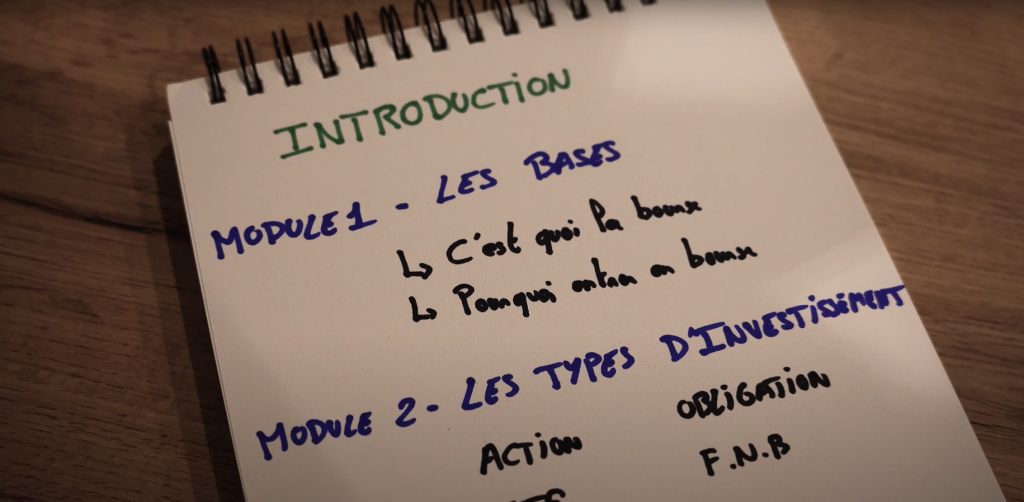 INTRODUCTION
MODULE 1 - LES BASES
↳ C'est quoi la bourse
↳ Pourquoi entrer en bourse
MODULE 2 - LES TYPES D'INVESTISSEMENT
ACTION OBLIGATION
F.N.B